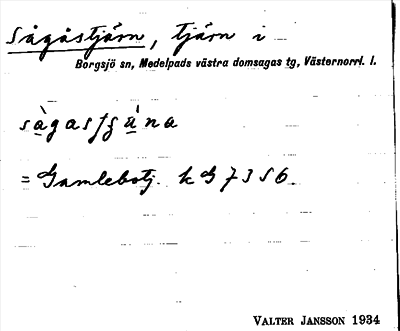 Sågåstjärn, tjärn i
Borgsjö sn, Medelpads västra domsagas tg, Västernorrl. l.
= Gamlebotj. k G 7356
VALTER JANSSON 1934